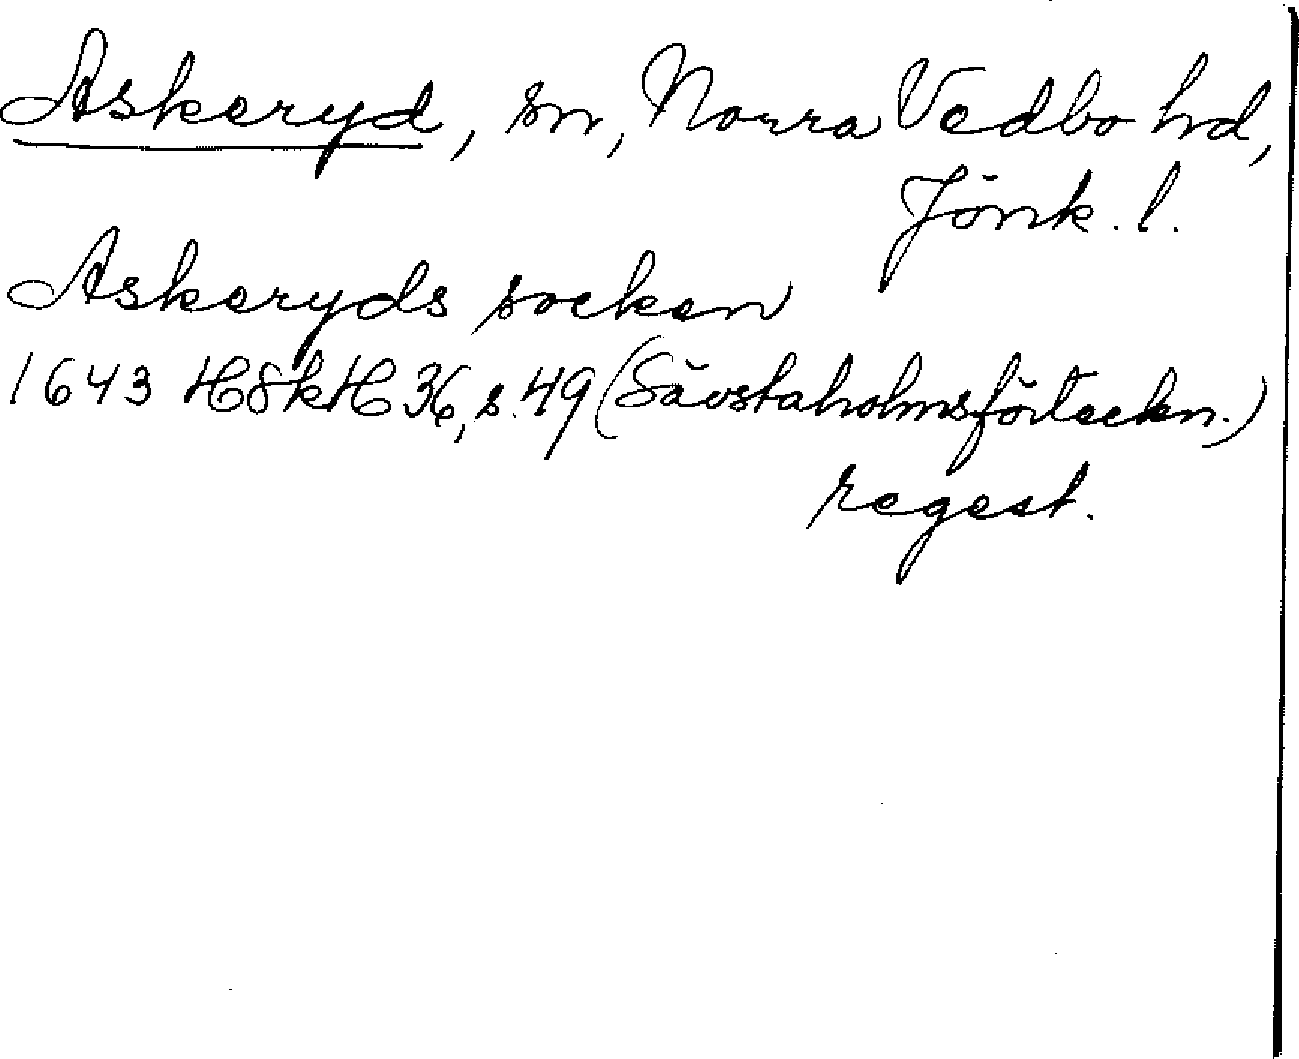 Askeryd, sn, Norra Vedbo hd,
Jönk. l.
Askeryds socken
1643 HSkH 36, s. 49 (Sävstaholmsförteckn.)
regest.